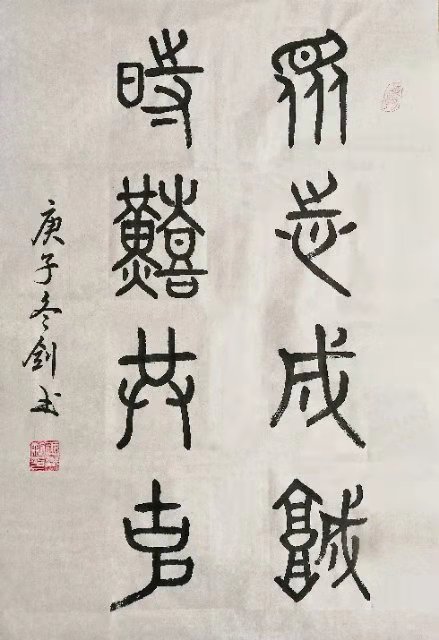 眾志成城
時艱共克
庚子冬剑书